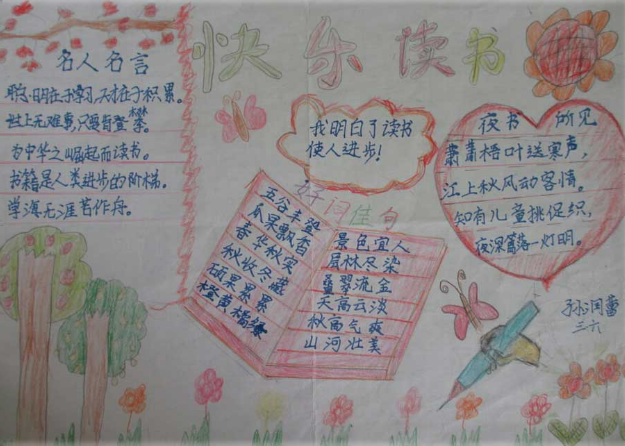 快乐读书
名人名言
聪明在于学习,天才在于积累。
世上无难事,只要肯登攀。
为中华之崛起而读书。
书籍是人类进步的阶梯。
学海无涯苦作舟。
我明白了读书
使人进步!
好词佳句
五谷丰登
瓜果飘香
春华秋实
秋收冬藏
硕果累累
橙黄橘绿
景色宜人
层林尽染
叠翠流金
天高云淡
秋高气爽
山河壮美
夜书所见
萧萧梧叶送寒声,
江上秋风动客情。
知有儿童挑促织,
夜深篱落一灯明。
三六